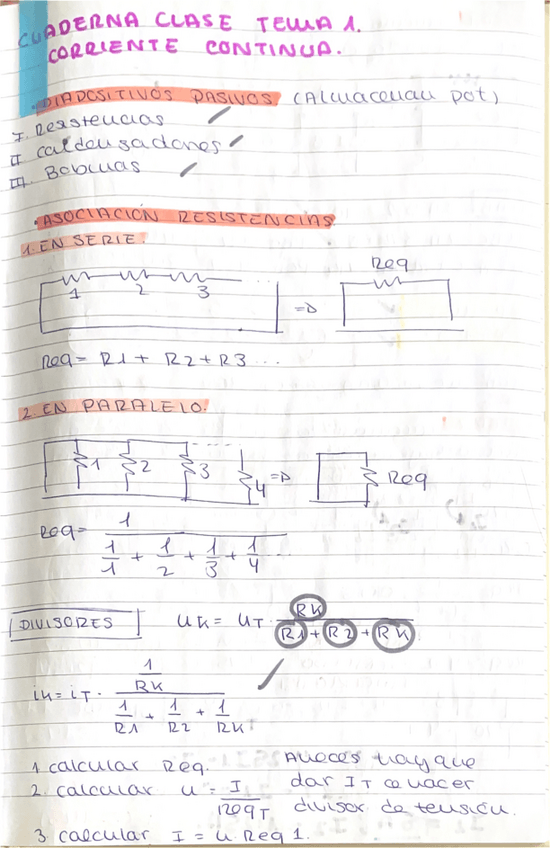 CUADERNA CLASE TEMA 1.
CORRIENTE CONTINUA.
• DIAPOSITIVOS PASIVOS (Almacenan pot)
I. Resistencias
II Caldensadones
III. Bobinas
• ASOCIACIÓN RESISTENCIAS
1. EN SERIE.
Req
1 2 3 ... =D
Req = R1 + R2 + R3 ...
2 EN PARALELO.
1 2 3 4 =D Req
Req = 1 / (1/1 + 1/2 + 1/3 + 1/4 ...)
DIVISORES uk = uT · RK / (R1 + R2 + RK)
ik = iT · (1/RK) / (1/R1 + 1/R2 + 1/RK)
1 calcular Req. Aveces hay que
2. calcular u = I / ReqT dar IT hacer
divisor de tensión.
3 calcular I = u. Req 1.